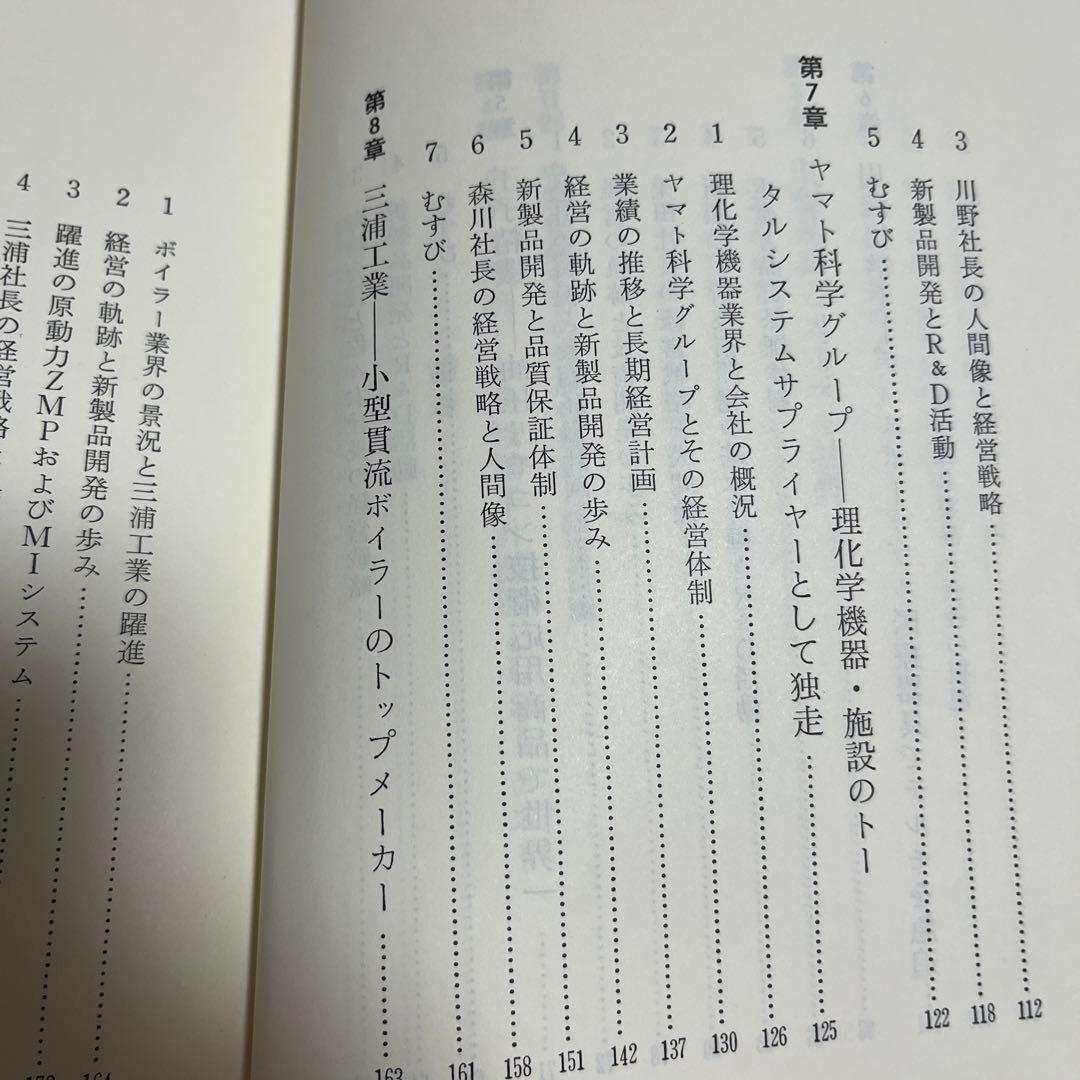 3 川野社長の人間像と経営戦略 112
4 新製品開発とR&D活動 118
5 むすび 122
第7章 ヤマト科学グループ――理化学機器・施設のトー
タルシステムサプライヤーとして独走 125
1 理化学機器業界と会社の概況 126
2 ヤマト科学グループとその経営体制 130
3 業績の推移と長期経営計画 137
4 経営の軌跡と新製品開発の歩み 142
5 新製品開発と品質保証体制 151
6 森川社長の経営戦略と人間像 158
7 むすび 161
第8章 三浦工業――小型貫流ボイラーのトップメーカー 163
1 ボイラー業界の景況と三浦工業の躍進 164
2 経営の軌跡と新製品開発の歩み
3 躍進の原動力ZMPおよびMIシステム
4 三浦社長の経営戦略